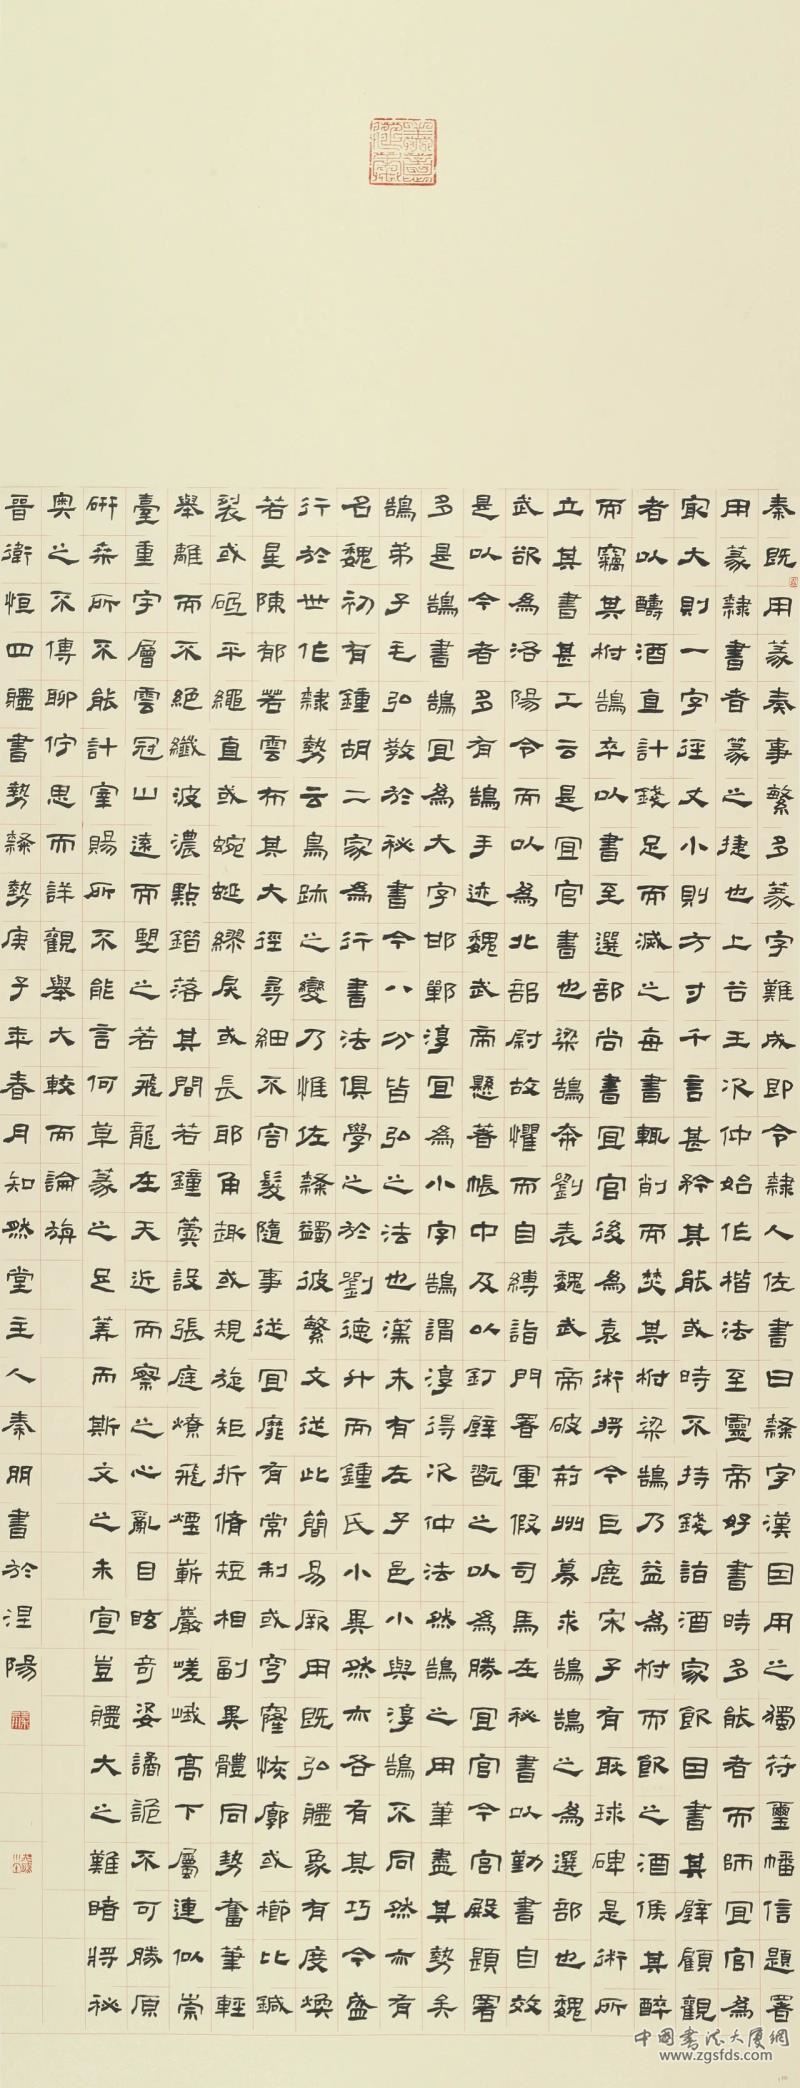 秦既用篆奏事繁多篆字難成即令隸人佐書曰隸字漢因用之獨符璽幡信題署
用篆隸書者篆之捷也上谷王次仲始作楷法至靈帝好書時多能者而師宜官為
冣大則一字徑丈小則方寸千言甚矜其能或時不持錢詣酒家飲因書其壁顧觀
者以醻酒直計錢足而滅之每書輒削而焚其柎梁鵠乃益為柎而飲之酒候其醉
而竊其柎鵠卒以書至選部尚書宜官後為袁術將今巨鹿宋子有耿球碑是術所
立其書甚工云是宜官書也梁鵠奔劉表魏武帝破荊州募求鵠鵠之為選部也魏
武欲為洛陽令而以為北部尉故懼而自縛詣門署軍假司馬在秘書以勤書自效
是以今者多有鵠手迹魏武帝懸著帳中及以釘壁翫之以為勝宜官今宮殿題署
多是鵠書鵠宜為大字邯鄲淳宜為小字鵠謂淳得次仲法然鵠之用筆盡其勢矣
鵠弟子毛弘教於秘書今八分皆弘之法也漢末有左子邑小與淳鵠不同然亦有
名魏初有鍾胡二家為行書法俱學之於劉德升而鍾氏小異然亦各有其巧今盛
行於世作隸勢云鳥跡之變乃惟佐隸蠲彼繁文從此簡易厥用既弘體象有度煥
若星陳郁若雲布其大徑尋細不容髮隨事從宜靡有常制或穹窿恢廓或櫛比鍼
裂或砥平繩直或蜿蜒繆戾或長邪角趣或規旋矩折脩短相副異體同勢奮筆輕
舉離而不絕纖波濃點錯落其間若鐘簴設張庭燎飛煙嶄巖嵯峨高下屬連似崇
臺重宇層雲冠山遠而望之若飛龍在天近而察之心亂目眩奇姿譎詭不可勝原
研桑所不能計宰賜所不能言何草篆之足算而斯文之未宣豈體大之難睹將秘
奧之不傳聊佇思而詳觀舉大較而論旃
晉衛恒四體書勢隸勢庚子年春月知然堂主人秦朋書於涅陽
中国书法大厦網
www.zgsfds.com